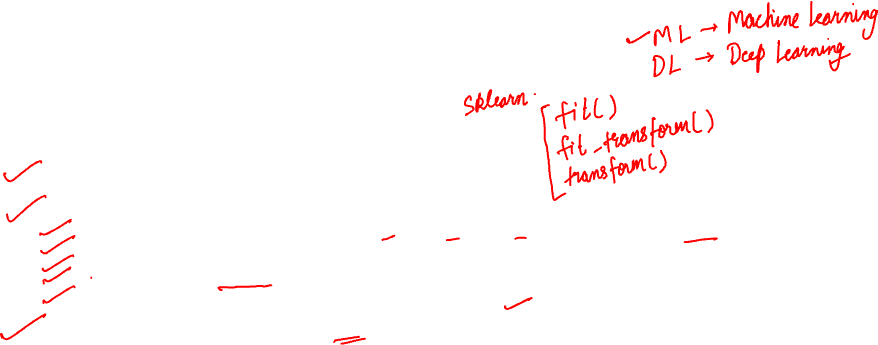 ML → Machine Learning
DL → Deep Learning
Sklearn.
fit()
fit_transform()
transform()